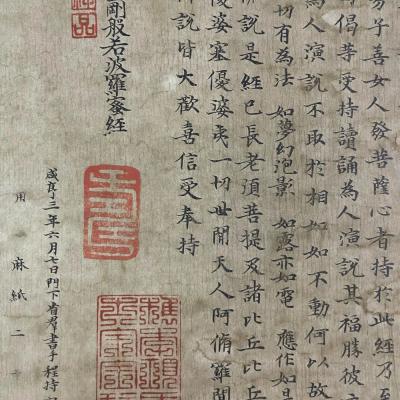 男子善女人發菩薩心者持於此經乃至
句偈等受持讀誦為人演說其福勝彼
為人演說不取於相如如不動何以故
切有為法 如夢幻泡影 如露亦如電 應作如是
佛說是經已長老須菩提及諸比丘比丘
優婆塞優婆夷一切世間天人阿脩羅聞
所說皆大歡喜信受奉持
剛般若波羅蜜經
咸亨三年六月七日門下省群書手程待
用麻紙二